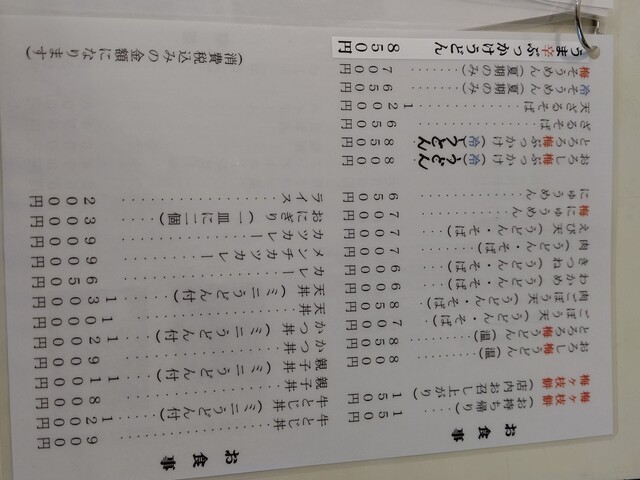 お食事
梅ヶ枝餅(お持ち帰り) 150円
梅ヶ枝餅(店内お召し上がり) 150円
おろし梅うどん(温) 800円
とろろ梅うどん(温) 850円
ごぼう天(うどん・そば) 700円
肉ごぼう天(うどん・そば) 850円
わかめ(うどん・そば) 600円
きつね(うどん・そば) 600円
肉(うどん・そば) 700円
えび天(うどん・そば) 700円
梅にゅうめん 700円
にゅうめん 650円
おろし梅ぶっかけ(冷)うどん 800円
とろろ梅ぶっかけ(冷)うどん 850円
ざるそば 650円
天ざるそば 1200円
冷そうめん(夏期のみ) 650円
梅そうめん(夏期のみ) 700円
うま辛ぶっかけうどん 850円
お食事
牛とじ丼 900円
牛とじ丼(ミニうどん付) 1200円
親子丼 800円
親子丼(ミニうどん付) 1100円
かつ丼 900円
かつ丼(ミニうどん付) 1200円
天丼 1000円
天丼(ミニうどん付) 1300円
カレー 650円
メンチカツカレー 900円
カツカレー 900円
おにぎり(一皿に二個) 300円
ライス 200円
(消費税込みの金額になります)